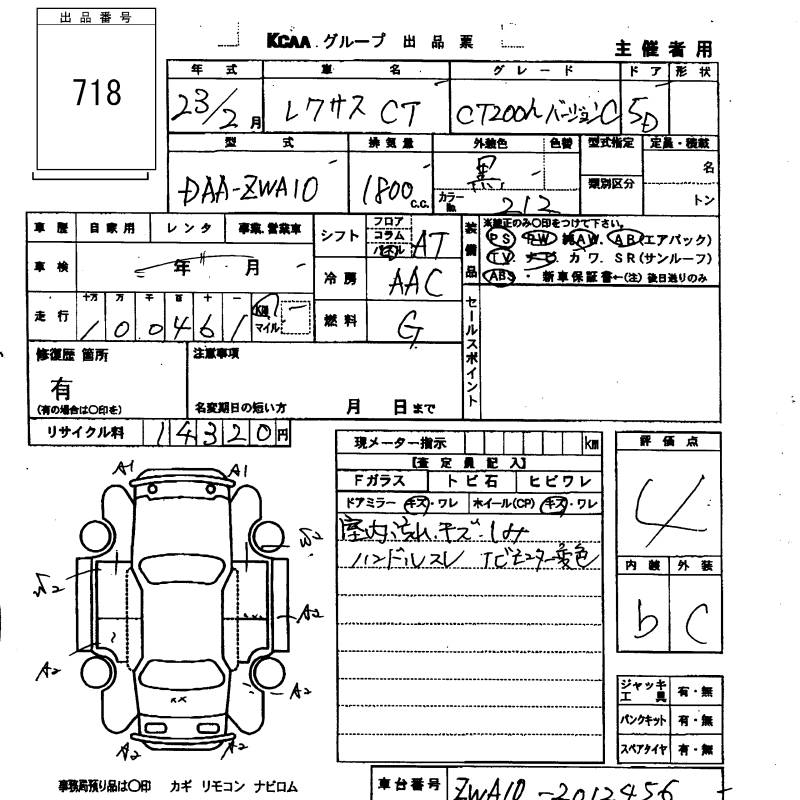 出品番号
718
KCAA グループ 出品票
主催者用
年式 車名 グレード ドア 形状
23/2月 レクサス CT CT200h バージョンC 5D
型式 排気量 外装色 色替 型式指定 定員・積載
DAA-ZWA10 1800 c.c. 黒 名
類別区分
カラーNo. 212 トン
車歴 自家用 レンタ 事業.営業車
シフト フロア コラム パネル AT
装備品 ※純正のみ〇印をつけて下さい。
PS PW 純AW. AB(エアバック)
TV. ナビ. カワ. SR(サンルーフ)
ABS ・ 新車保証書←(注)後日送りのみ
車検 年 月
冷房 AAC
走行 十万 万 千 百 十 一
100461 Km マイル
燃料 G
セールスポイント
修復歴 箇所
有
(有の場合は〇印を)
注意事項
名変期日の短い方 月 日まで
リサイクル料 14320円
現メーター指示 km
【査定員記入】
Fガラス トビ石 ヒビワレ
ドアミラー キズ・ワレ ホイール(CP) キズ・ワレ
室内汚れ.キズ.しみ
ハンドルスレ TVモニター変色
評価点
4
内装 外装
b C
A1 A1
W2
W2
A2
A2
A2
XX
A2 A2
ジャッキ工具 有・無
パンクキット 有・無
スペアタイヤ 有・無
事務局預り品は〇印 カギ リモコン ナビロム
車台番号 ZWA10-2012456